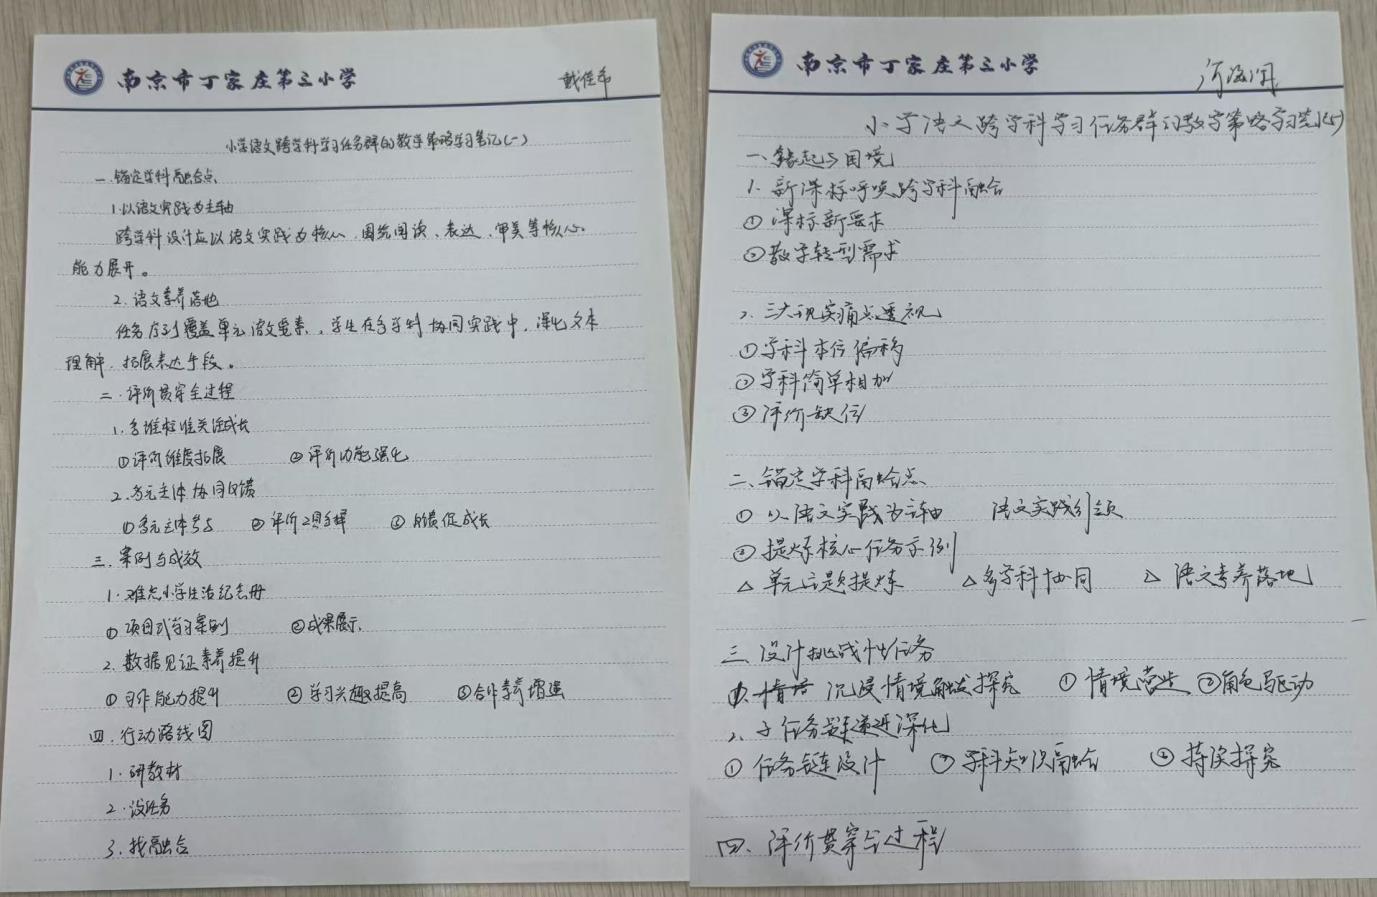 南京市丁家庄第三小学
戴佳希
小学语文跨学科学习任务群的教学策略学习笔记(一)
一.锚定学科融合点
1.以语文实践为主轴
跨学科设计应以语文实践为核心,围绕阅读、表达、审美等核心
能力展开。
2.语文素养落地
任务序列覆盖单元语文要素,学生在多学科协同实践中,深化文本
理解,拓展表达手段。
二.评价贯穿全过程
1.多维标准关注成长
①评价维度拓展 ②评价功能强化
2.多元主体协同反馈
①多元主体参与 ②评价 ③反馈促成长
三.案例与成效
1.难忘小学生活纪念册
①项目式学习案例 ②成果展示
2.数据见证素养提升
①习作能力提升 ②学习兴趣提高 ③合作素养增强
四.行动路线图
1.研教材
2.设任务
3.找融合
南京市丁家庄第三小学
小学语文跨学科学习任务群的教学策略学习笔记
一、缘起与困境
1.新课标呼唤跨学科融合
①课标新要求
②教学转型需求
2.三大现实痛点透视
①学科本位偏移
②学科简单相加
③评价缺位
二、锚定学科融合点
①以语文实践为主轴 语文实践引领
②提炼核心任务示例
△单元主题提炼 △多学科协同 △语文素养落地
三.设计挑战性任务
1.沉浸情境触发探究 ①情境营造 ②角色驱动
2.子任务群递进深化
①任务链设计 ②学科知识融合 ③持续探究
四、评价贯穿全过程